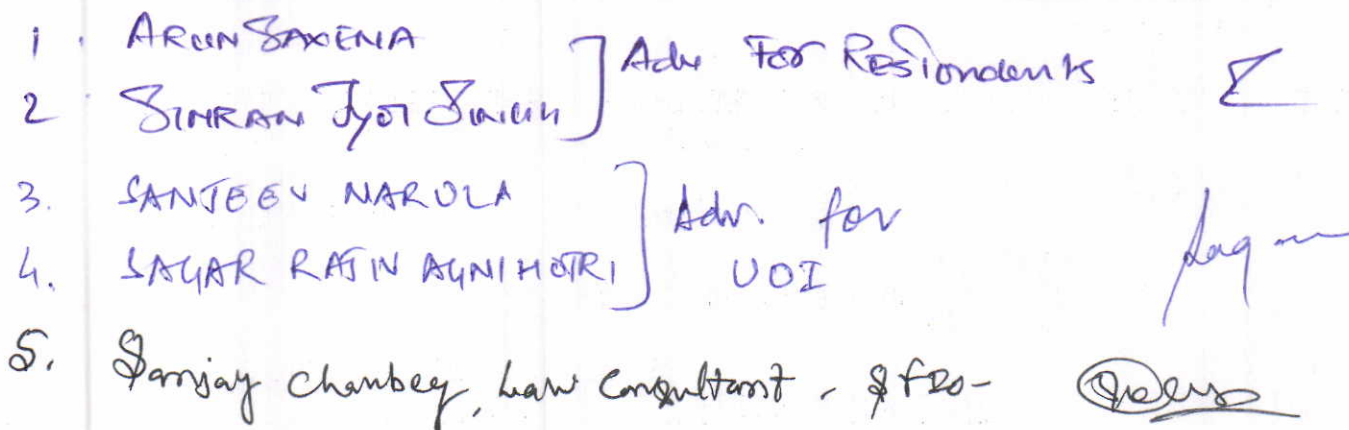 1. ARUN SAXENA
2. SIMRAN Jyot SINGH ] Adv For Respondents
3. SANJEEV NARULA
4. SAGAR RAJIV AGNIHOTRI ] Adv. for UOI
5. Sanjay Chaubey, Law Consultant, SFIO-